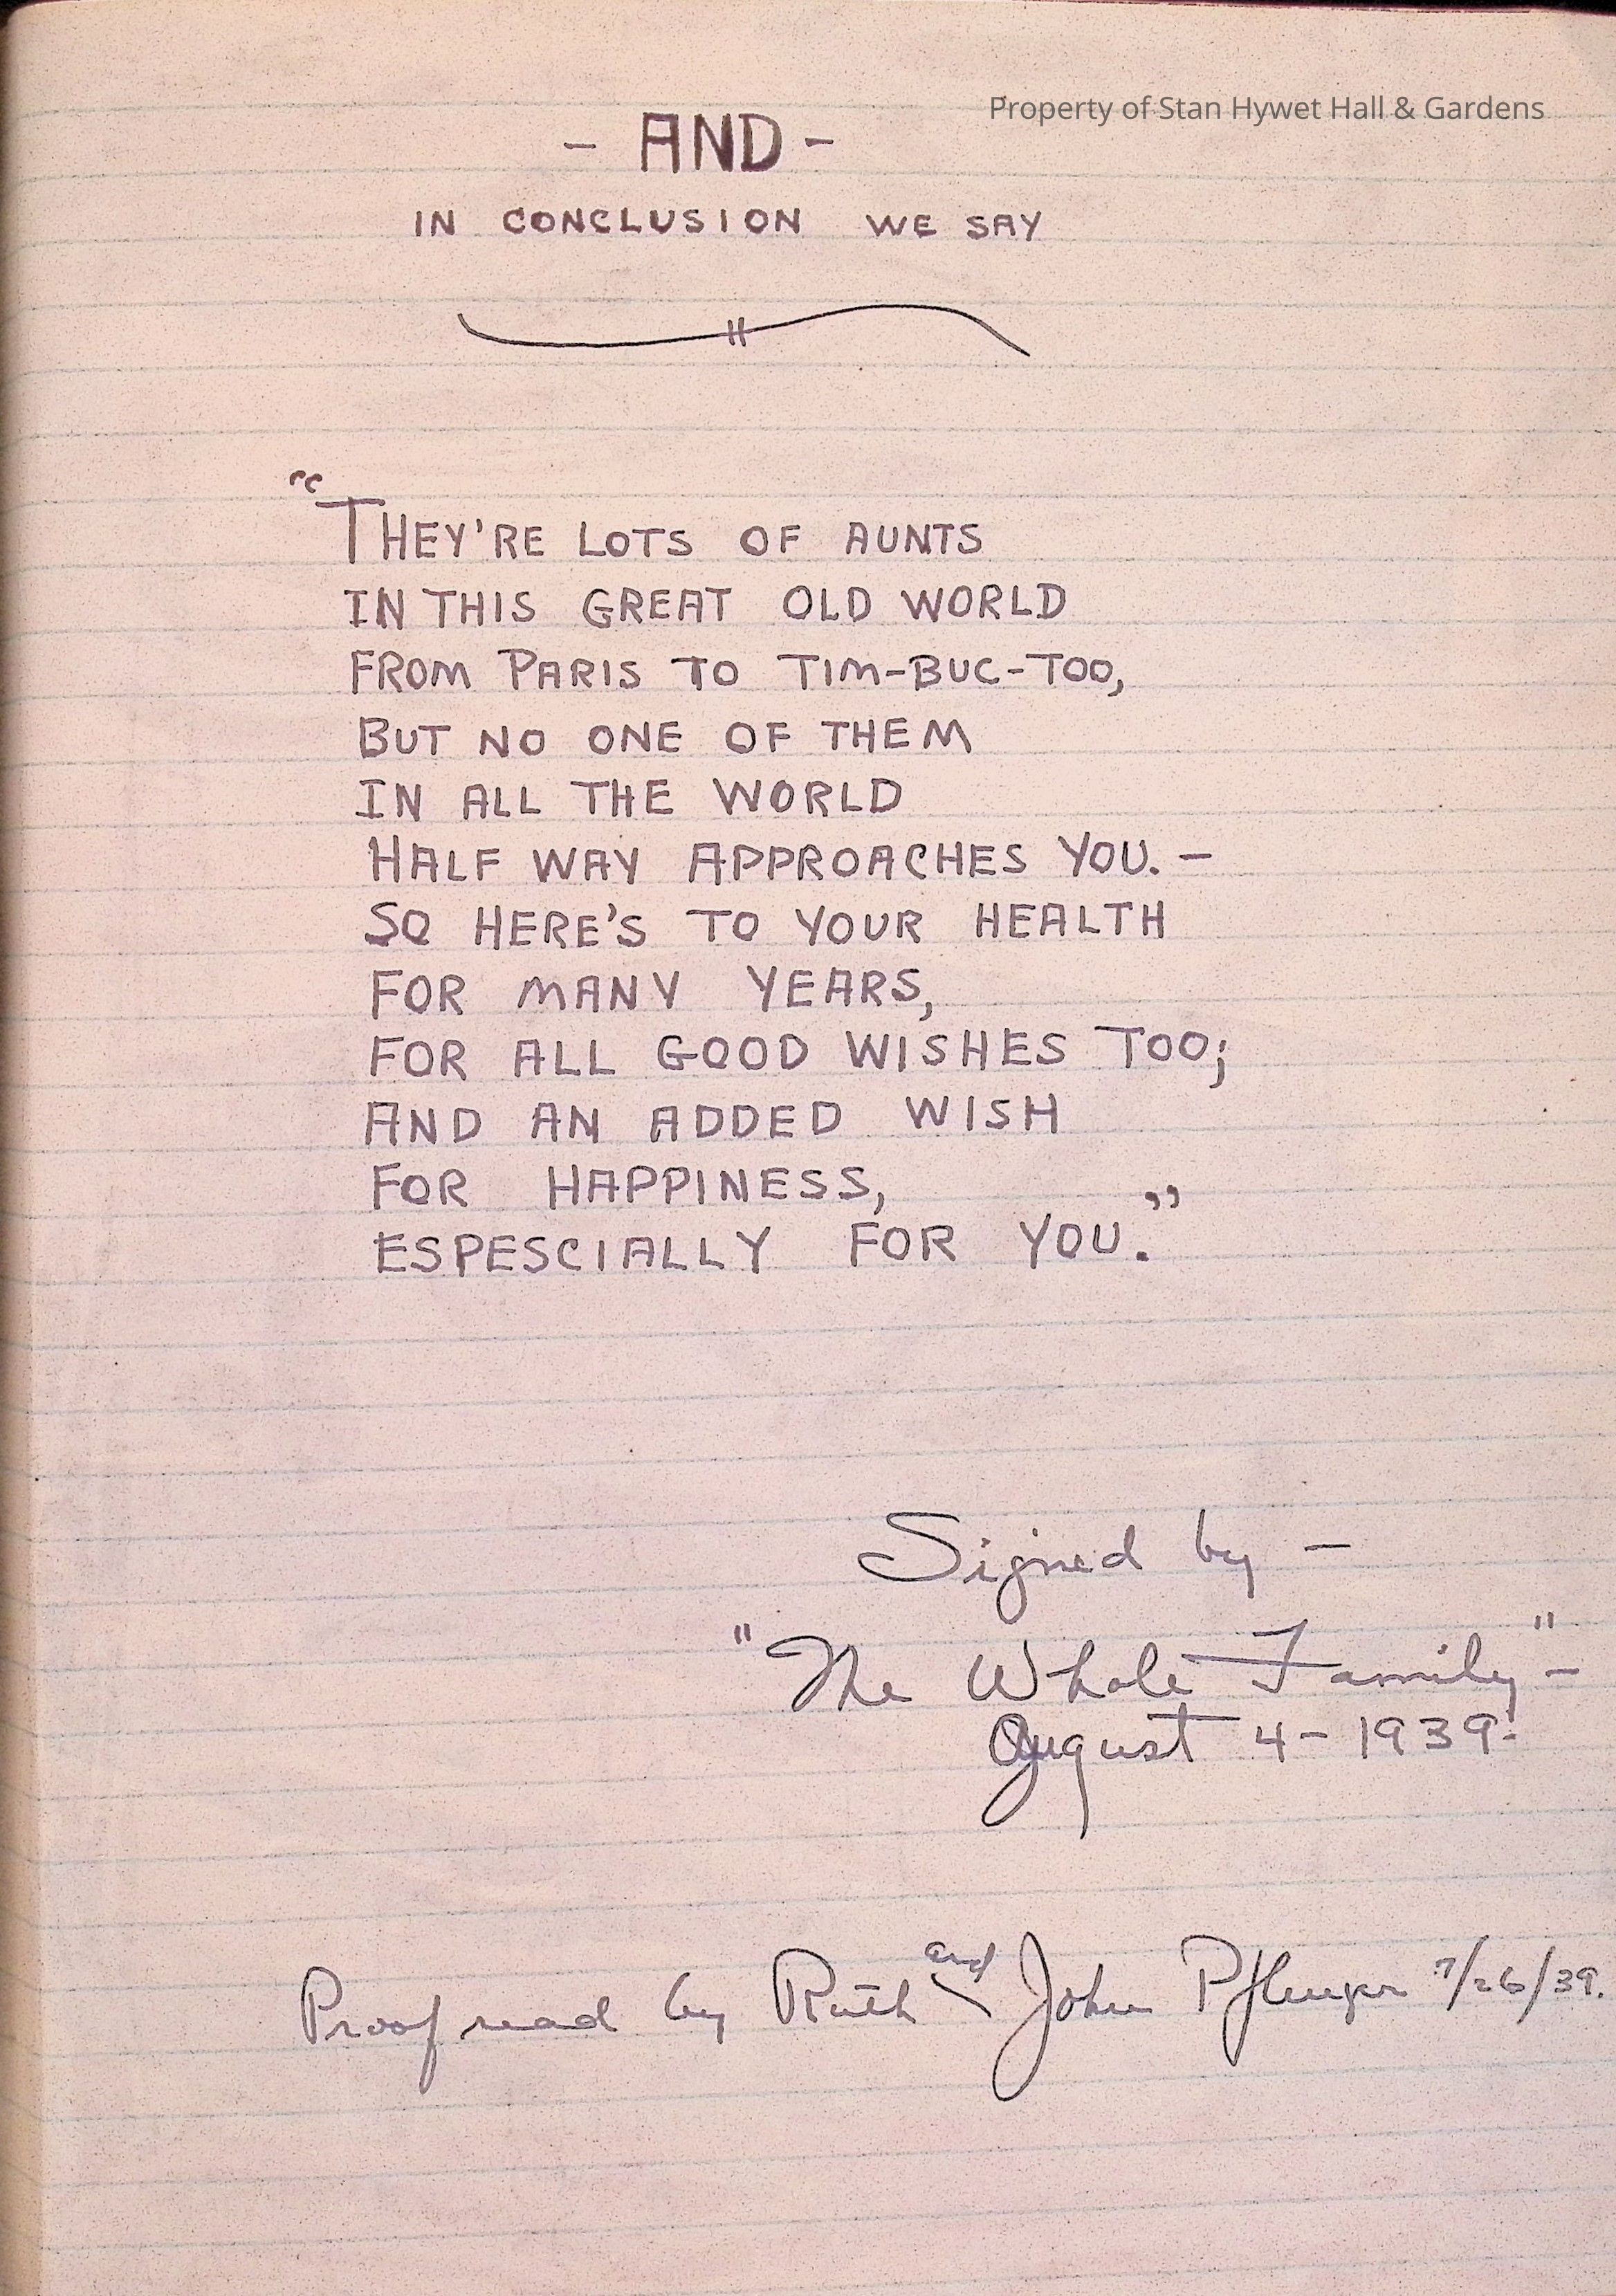 Property of Stan Hywet Hall & Gardens
- AND -
IN CONCLUSION WE SAY
"THEY'RE LOTS OF AUNTS
IN THIS GREAT OLD WORLD
FROM PARIS TO TIM-BUC-TOO,
BUT NO ONE OF THEM
IN ALL THE WORLD
HALF WAY APPROACHES YOU. -
SO HERE'S TO YOUR HEALTH
FOR MANY YEARS,
FOR ALL GOOD WISHES TOO;
AND AN ADDED WISH
FOR HAPPINESS,
ESPESCIALLY FOR YOU."
Signed by -
"The Whole Family" -
August 4 - 1939.
Proof read by Ruth and John Pflueger 7/26/39.